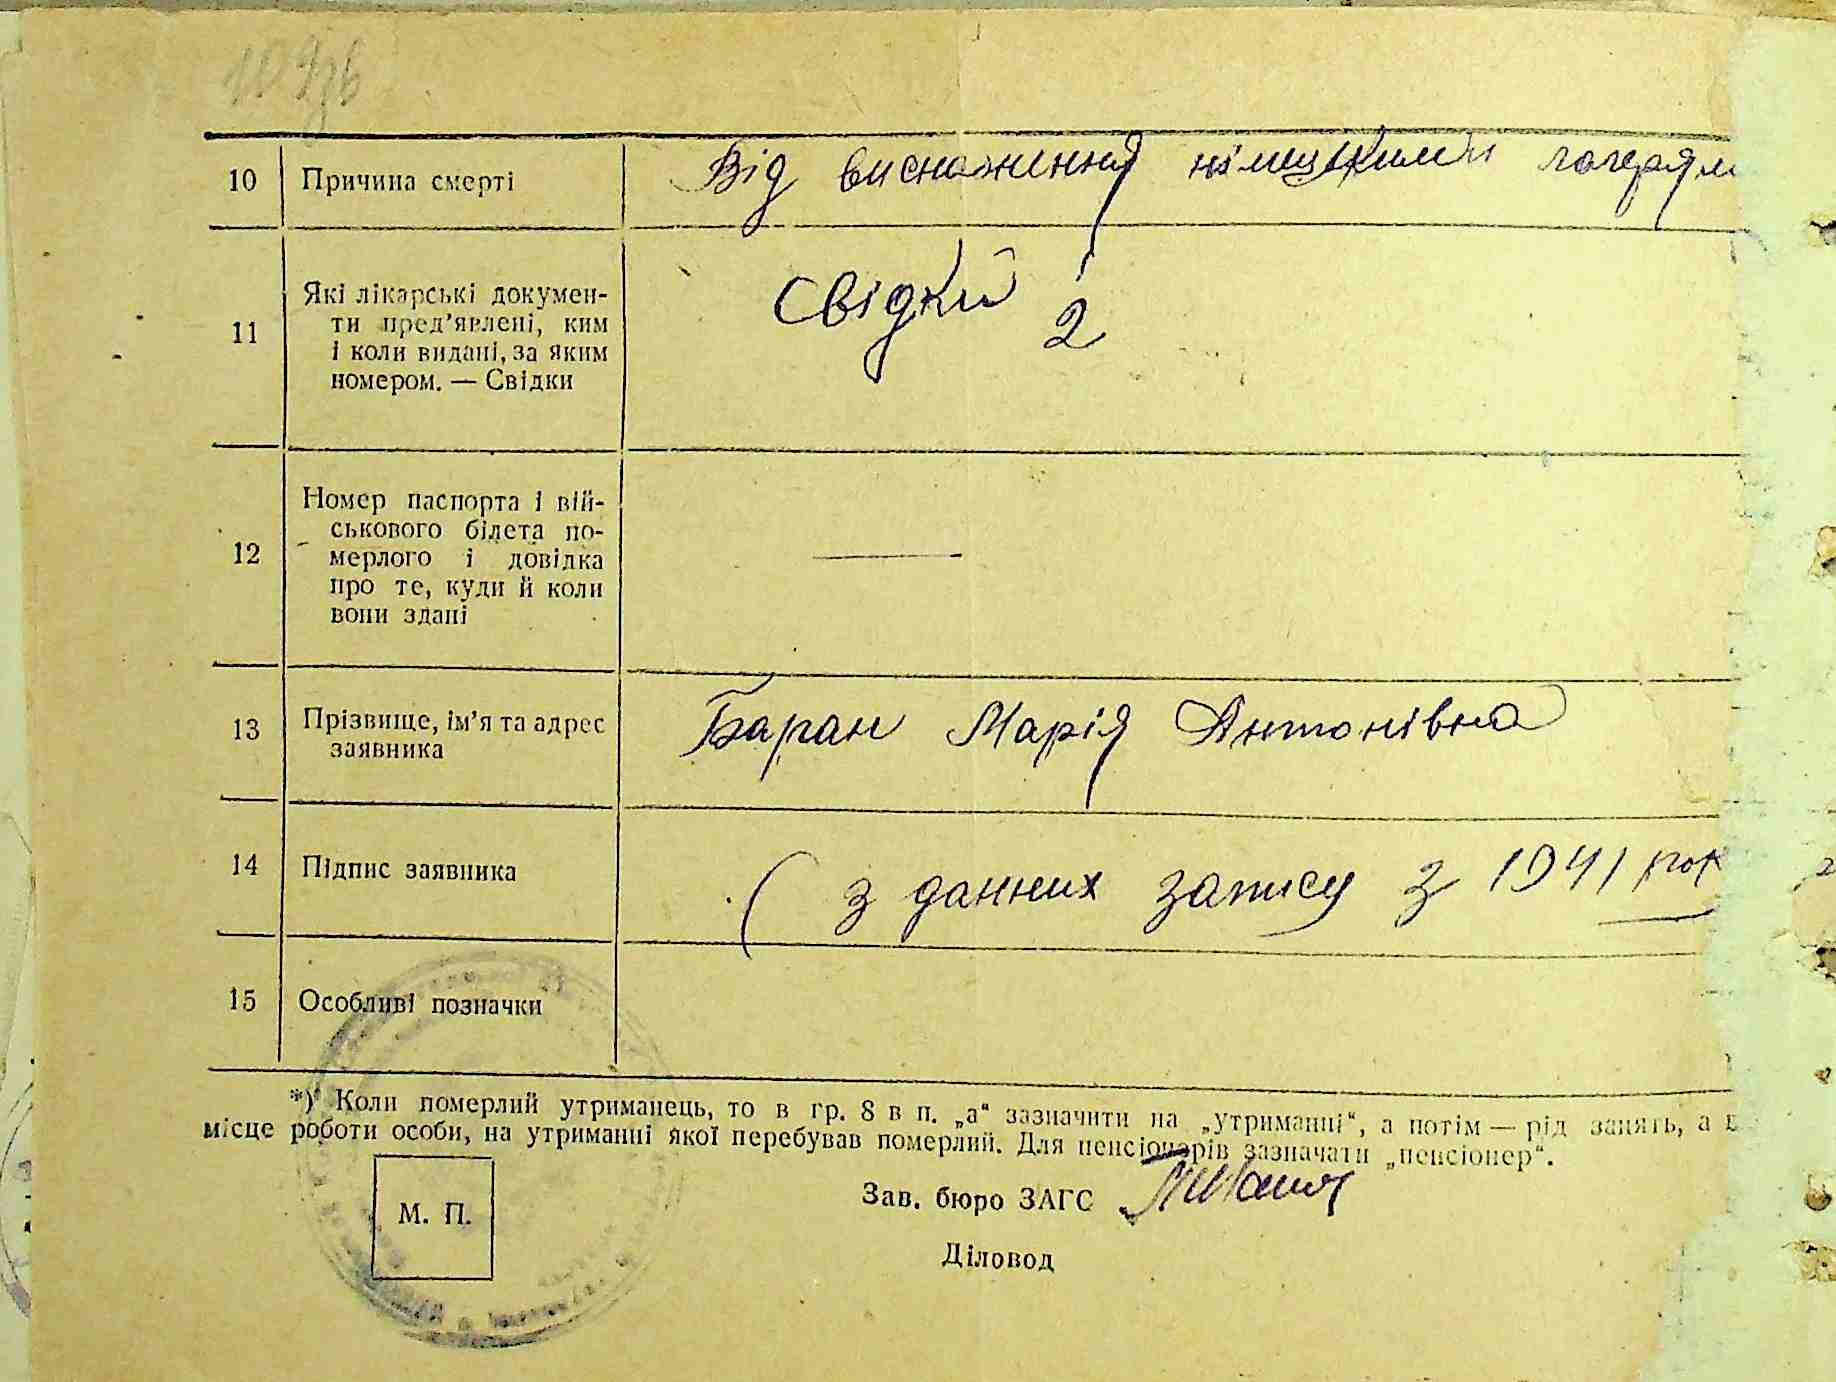 10 Причина смерті Від виснаження німецкими лагерям
11 Які лікарські докумен-
ти пред’явлені, ким
і коли видані, за яким
номером. — Свідки
Свідки 2
12 Номер паспорта і вій-
ськового білета по-
мерлого і довідка
про те, куди й коли
вони здані
—
13 Прізвище, ім’я та адрес
заявника
Баран Марія Антонівна
14 Підпис заявника ( з данних запису з 1941 рок
15 Особливі позначки
*) Коли померлий утриманець, то в гр. 8 в п. „а“ зазначити на „утриманні“, а потім — рід занять, а в
місце роботи особи, на утриманні якої перебував померлий. Для пенсіонерів зазначати „пенсіонер“.
М. П.
Зав. бюро ЗАГС
Діловод